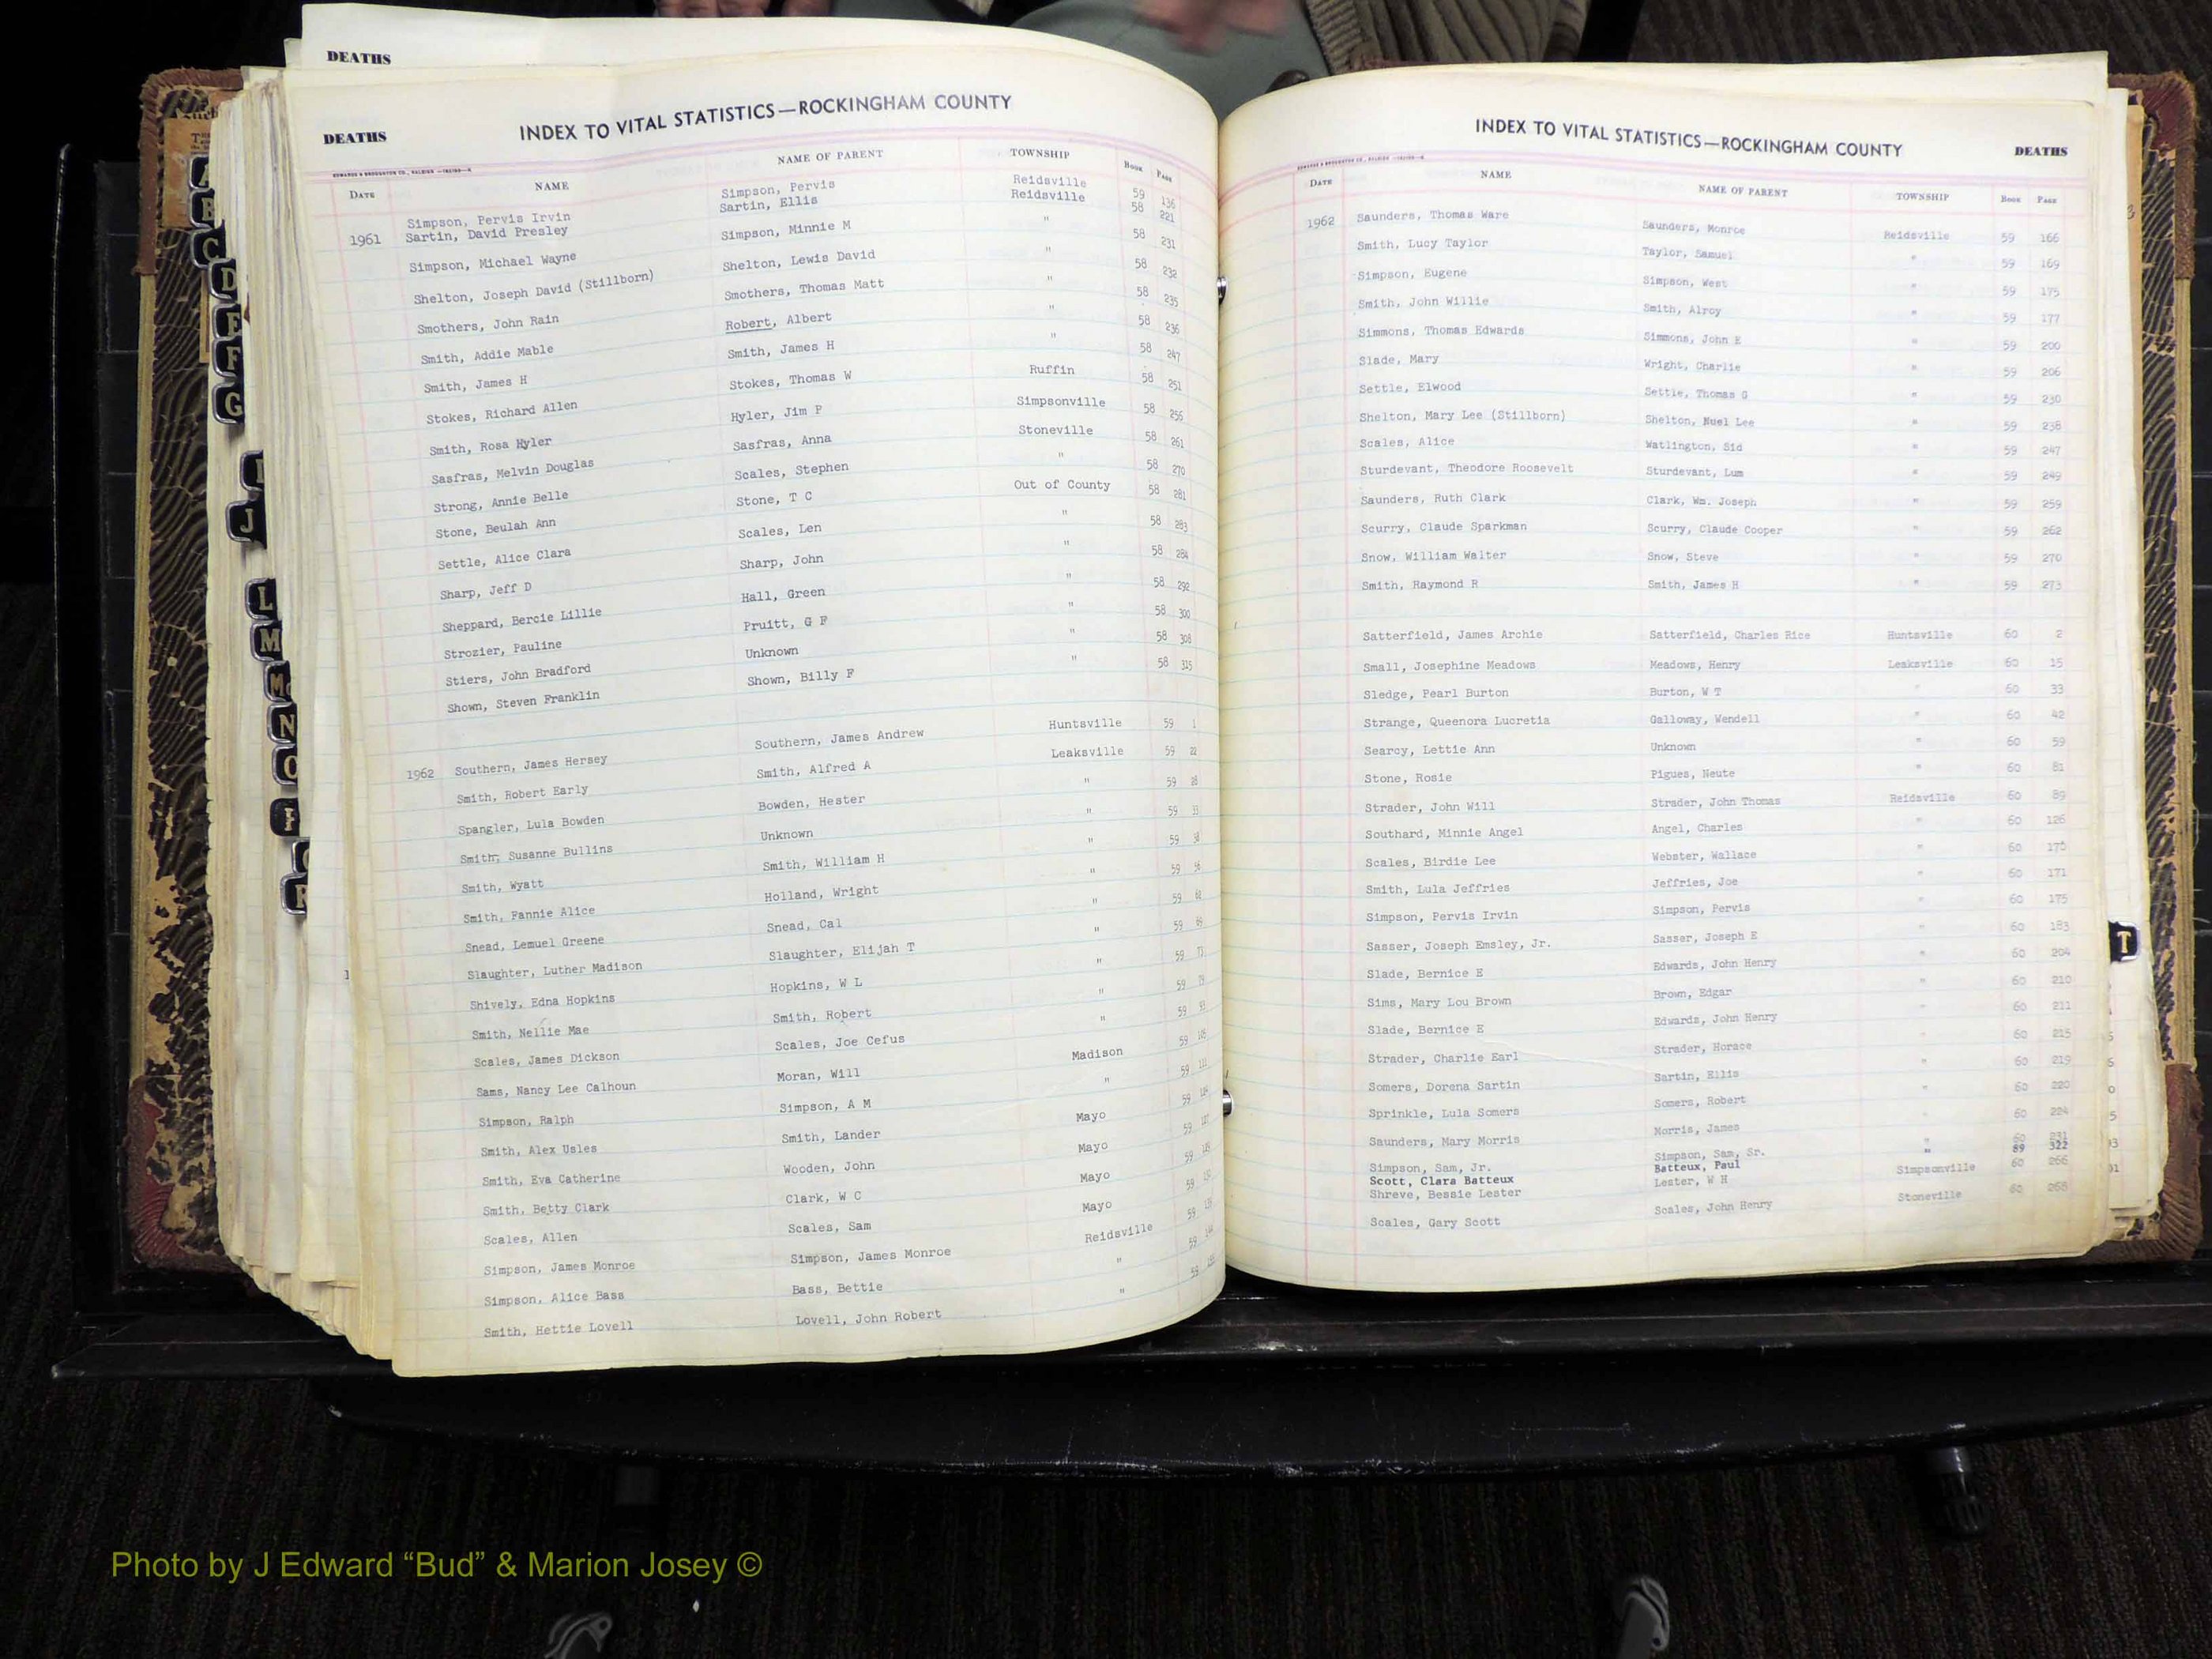 DEATHS
DEATHS
INDEX TO VITAL STATISTICS—ROCKINGHAM COUNTY
DATE NAME NAME OF PARENT TOWNSHIP BOOK PAGE
Simpson, Pervis Irvin Simpson, Pervis Reidsville 59 136
1961 Sartin, David Presley Sartin, Ellis Reidsville 58 221
Simpson, Michael Wayne Simpson, Minnie M " 58 231
Shelton, Joseph David (Stillborn) Shelton, Lewis David " 58 232
Smothers, John Rain Smothers, Thomas Matt " 58 235
Smith, Addie Mable Robert, Albert " 58 236
Smith, James H Smith, James H " 58 247
Stokes, Richard Allen Stokes, Thomas W Ruffin 58 251
Smith, Rosa Hyler Hyler, Jim P Simpsonville 58 256
Sasfras, Melvin Douglas Sasfras, Anna Stoneville 58 261
Strong, Annie Belle Scales, Stephen " 58 270
Stone, Beulah Ann Stone, T C Out of County 58 281
Settle, Alice Clara Scales, Len " 58 283
Sharp, Jeff D Sharp, John " 58 284
Sheppard, Bercie Lillie Hall, Green " 58 292
Strozier, Pauline Pruitt, G F " 58 300
Stiers, John Bradford Unknown " 58 308
Shown, Steven Franklin Shown, Billy F " 58 315
1962 Southern, James Hersey Southern, James Andrew Huntsville 59 1
Smith, Robert Early Smith, Alfred A Leaksville 59 22
Spangler, Lula Bowden Bowden, Hester " 59
Smith, Susanne Bullins Unknown " 59
Smith, Wyatt Smith, William H " 59
Smith, Fannie Alice Holland, Wright " 59
Snead, Lemuel Greene Snead, Cal " 59
Slaughter, Luther Madison Slaughter, Elijah T " 59
Shively, Edna Hopkins Hopkins, W L " 59
Smith, Nellie Mae Smith, Robert " 59
Scales, James Dickson Scales, Joe Cefus " 59
Sams, Nancy Lee Calhoun Moran, Will Madison 59
Simpson, Ralph Simpson, A M " 59
Smith, Alex Usles Smith, Lander Mayo 59
Smith, Eva Catherine Wooden, John Mayo 59
Smith, Betty Clark Clark, W C Mayo 59
Scales, Allen Scales, Sam Mayo 59
Simpson, James Monroe Simpson, James Monroe Reidsville 59
Simpson, Alice Bass Bass, Bettie " 59
Smith, Hettie Lovell Lovell, John Robert " 59
INDEX TO VITAL STATISTICS—ROCKINGHAM COUNTY
DEATHS
DATE NAME NAME OF PARENT TOWNSHIP BOOK PAGE
1962 Saunders, Thomas Ware Saunders, Monroe Reidsville 59 166
Smith, Lucy Taylor Taylor, Samuel " 59 169
Simpson, Eugene Simpson, West " 59 175
Smith, John Willie Smith, Alroy " 59 177
Simmons, Thomas Edwards Simmons, John E " 59 200
Slade, Mary Wright, Charlie " 59 206
Settle, Elwood Settle, Thomas G " 59 230
Shelton, Mary Lee (Stillborn) Shelton, Nuel Lee " 59 238
Scales, Alice Watlington, Sid " 59 247
Sturdevant, Theodore Roosevelt Sturdevant, Lum " 59 249
Saunders, Ruth Clark Clark, Wm. Joseph " 59 259
Scurry, Claude Sparkman Scurry, Claude Cooper " 59 262
Snow, William Walter Snow, Steve " 59 270
Smith, Raymond R Smith, James H " 59 273
Satterfield, James Archie Satterfield, Charles Rice Huntsville 60 2
Small, Josephine Meadows Meadows, Henry Leaksville 60 15
Sledge, Pearl Burton Burton, W T " 60 33
Strange, Queenora Lucretia Galloway, Wendell " 60 42
Searcy, Lettie Ann Unknown " 60 59
Stone, Rosie Pigues, Neute " 60 81
Strader, John Will Strader, John Thomas Reidsville 60 89
Southard, Minnie Angel Angel, Charles " 60 126
Scales, Birdie Lee Webster, Wallace " 60 170
Smith, Lula Jeffries Jeffries, Joe " 60 171
Simpson, Pervis Irvin Simpson, Pervis " 60 175
Sasser, Joseph Emsley, Jr. Sasser, Joseph E " 60 183
Slade, Bernice E Edwards, John Henry " 60 204
Sims, Mary Lou Brown Brown, Edgar " 60 210
Slade, Bernice E Edwards, John Henry " 60 211
Strader, Charlie Earl Strader, Horace " 60 215
Somers, Dorena Sartin Sartin, Ellis " 60 219
Sprinkle, Lula Somers Somers, Robert " 60 220
Saunders, Mary Morris Morris, James " 60 224
Simpson, Sam, Jr. Simpson, Sam, Sr. " 60 231
Scott, Clara Batteux Batteux, Paul " 89 322
Shreve, Bessie Lester Lester, W H Simpsonville 60 266
Scales, Gary Scott Scales, John Henry Stoneville 60 268
A
B
C
D
E
F
G
I
J
L
M
Mc
N
O
P
Q
R
T
Photo by J Edward “Bud” & Marion Josey ©